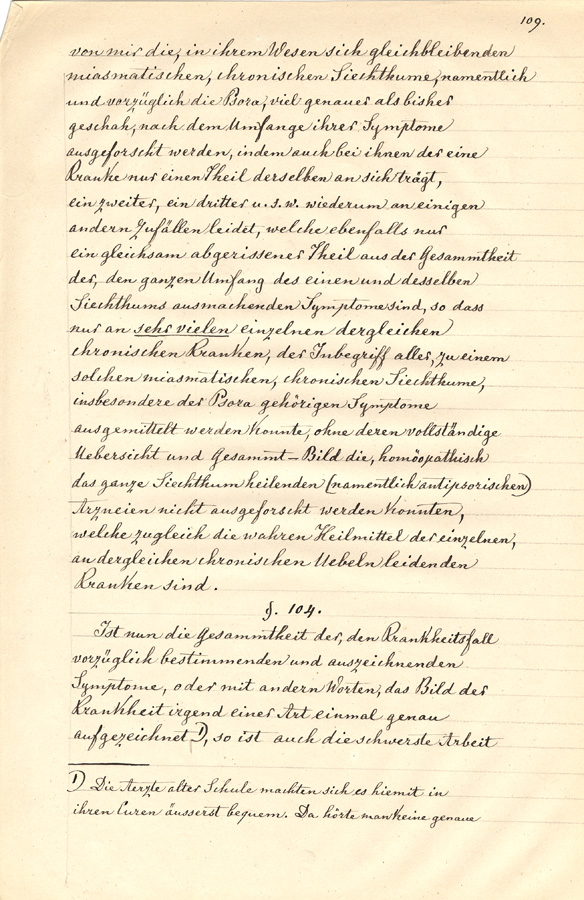 109.
von mir die, in ihrem Wesen sich gleichbleibenden
miasmatischen, chronischen Siechthume, namentlich
und vorzüglich die Psora, viel genauer als bisher
geschah, nach dem Umfange ihrer Symptome
ausgeforscht werden, indem auch bei ihnen der eine
Kranke nur einen Theil derselben an sich trägt,
ein zweiter, ein dritter u. s. w. wiederum an einigen
andern Zufällen leidet, welche ebenfalls nur
ein gleichsam abgerissener Theil aus der Gesammtheit
der, den ganzen Umfang des einen und desselben
Siechthums ausmachenden Symptome sind, so dass
nur an sehr vielen einzelnen dergleichen
chronischen Kranken, der Inbegriff aller, zu einem
solchen miasmatischen, chronischen Siechthume,
insbesondere der Psora gehörigen Symptome
ausgemittelt werden konnte, ohne deren vollständige
Uebersicht und Gesammt-Bild die, homöopathisch
das ganze Siechthum heilenden (namentlich antipsorischen)
Arzneien nicht ausgeforscht werden konnten,
welche zugleich die wahren Heilmittel der einzelnen,
an dergleichen chronischen Uebeln leidenden
Kranken sind.
§. 104.
Ist nun die Gesammtheit der, den Krankheitsfall
vorzüglich bestimmenden und auszeichnenden
Symptome, oder mit andern Worten, das Bild der
Krankheit irgend einer Art einmal genau
aufgezeichnet 1), so ist auch die schwerste Arbeit
1) Die Aerzte alter Schule machten sich es hiemit in
ihren Curen äusserst bequem. Da hörte man keine genaue